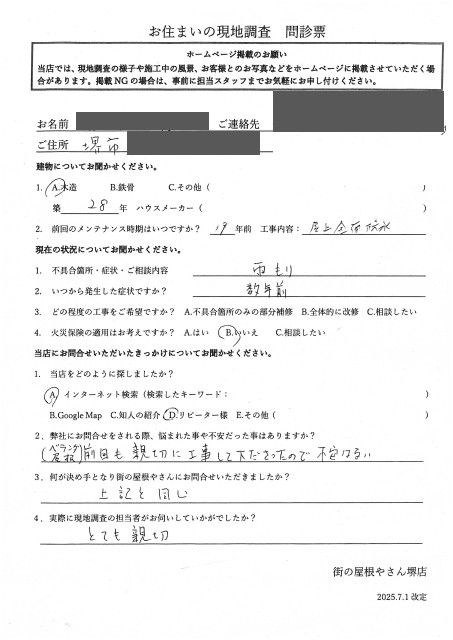 お住まいの現地調査　問診票
ホームページ掲載のお願い
当店では、現地調査の様子や施工中の風景、お客様とのお写真などをホームページに掲載させていただく場
合があります。掲載NGの場合は、事前に担当スタッフまでお気軽にお申し付けください。
お名前　ご連絡先
ご住所　堺市
建物についてお聞かせください。
1.　A.木造　B.鉄骨　C.その他（　）
築　28　年　ハウスメーカー（　）
2.　前回のメンテナンス時期はいつですか？　19　年前　工事内容：屋上全面防水
現在の状況についてお聞かせください。
1.　不具合箇所・症状・ご相談内容　雨もり
2.　いつから発生した症状ですか？　数年前
3.　どの程度の工事をご希望ですか？　A.不具合箇所のみの部分補修　B.全体的に改修　C.相談したい
4.　火災保険の適用はお考えですか？　A.はい　B.いいえ　C.相談したい
当店にお問合せいただいたきっかけについてお聞かせください。
1.　当店をどのように探しましたか？
A. インターネット検索（検索したキーワード：　）
B.Google Map　C.知人の紹介　D.リピーター様　E.その他（　）
2．弊社にお問合せをされる際、悩まれた事や不安だった事はありますか？
(ベランダ屋根) 前回も親切に工事して下ださったので不安はない
3．何が決め手となり街の屋根やさんにお問合せいただきましたか？
上記と同じ
4．実際に現地調査の担当者がお伺いしていかがでしたか？
とても親切
街の屋根やさん堺店
2025.7.1 改定